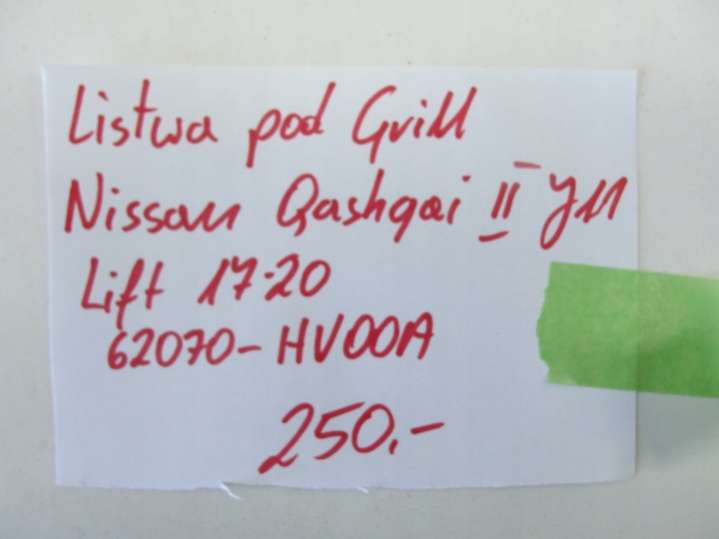 Listwa pod Grill
Nissan Qashqai II J11
Lift 17-20
62070-HV00A
250.-